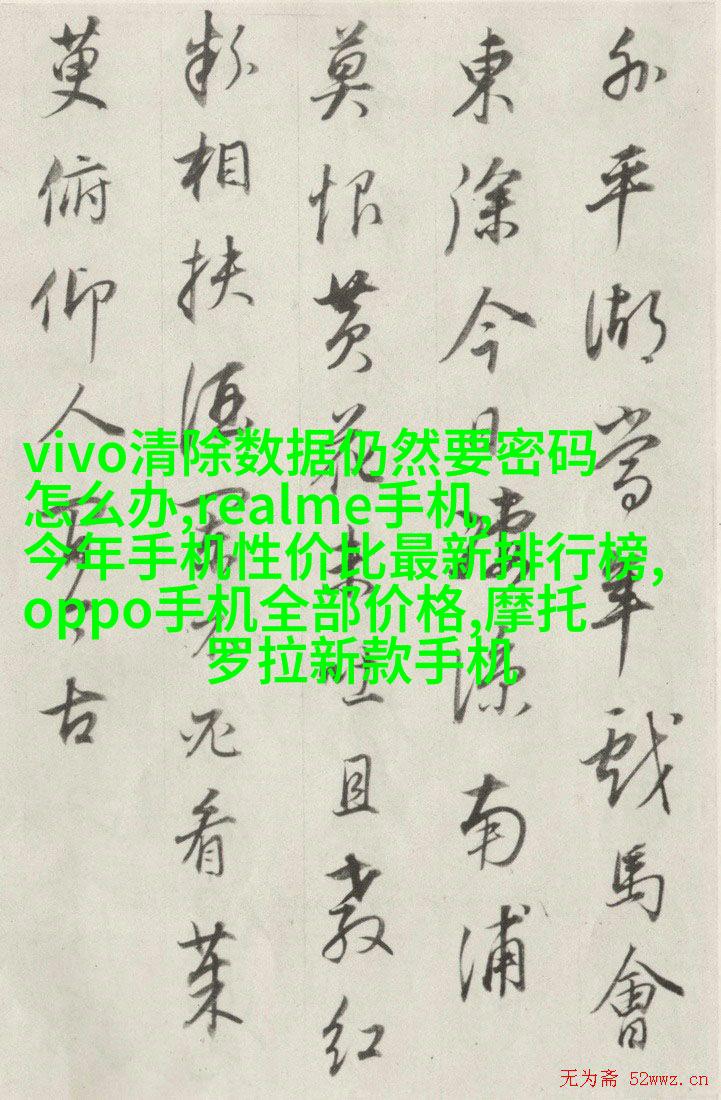 外平湖當年戲馬會
東徐今日凄涼南浦
莫恨黄花未吐且教红
粉相扶酒闌不必看茱
萸俯仰人間今古
vivo清除数据仍然要密码
怎么办,realme手机,
今年手机性价比最新排行榜,
oppo手机全部价格,摩托
罗拉新款手机
无为斋 52wwz.cn